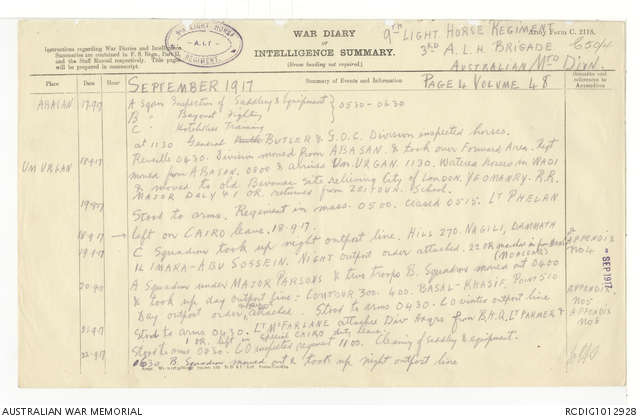 WAR DIARY
OR
INTELLIGENCE SUMMARY.
(Erase heading not required).
Instructions regarding War Diaries and Intelligence
Summaries are contained in F. S. Regs., Part II.
and the Staff Manual respectively. Title pages
will be prepared in manuscript.
9TH LIGHT HORSE REGIMENT
A.I.F.
REGIMENT.
9TH LIGHT HORSE REGIMENT
Army Form C. 2118.
3RD A.L.H. BRIGADE
AUSTRALIAN MTD DIVN.
Place
Date
Hour
Summary of Events and Information
Remarks and
references to
Appendices
SEPTEMBER 1917
PAGE 4 VOLUME 48
ABASAN 17-9-17 A Sqdn Inspection of Saddlery & Equipment
B " Bayonet Fighting } 0530-0630
C " Hotchkiss Training
at 1130 General BUTLER & G.O.C. Division inspected horses.
UM URGAN 18-9-17 Reveille 0430. Division moved from ABASAN & took over Forward Area. Regt
moved from ABASAN 0800 & arrived Um URGAN 1130. Watered horses in WADI
& moved to old Bivouac site relieving City of London YEOMANRY. R.R.
MAJOR DALY & 1 OR. returned from ZEITOUN School.
Stood to arms. Regiment in mass. 0500. ceased 0515. Lt PHELAN
18-9-17 left on CAIRO leave. 18-9-17.
19-9-17 C Squadron took up night outpost line. HILL 270. NAGILI, DAMMATH
IL IMARA-ABU SOSSEIN. NIGHT outpost order attached. 22 OR marched in from
APPENDIX
NO 4
20-9-17 A Squadron under MAJOR PARSONS & two troops B. Squadron moved out 0400
& took up day outpost line: CONTOUR 300. 400. BASAL-KHASIF. POINT 510
Day outpost order attached. Stood to arms 0430. CO visited outpost line
APPENDIX
NO 5
21-9-17 Stood to arms 0430. Lt McFARLANE attached Div Hdqrs from B.H.Q. Lt PARMER &
1 OR. left on special CAIRO duty leave.
APPENDIX
NO 6
22-9-17 Stood to arms 0430. CO inspected regiment 1100. Cleaning of saddlery & equipment.
1630 B. Squadron moved out & took up night outpost line
SEP 1917
AUSTRALIAN WAR MEMORIAL
RCDIG1012928